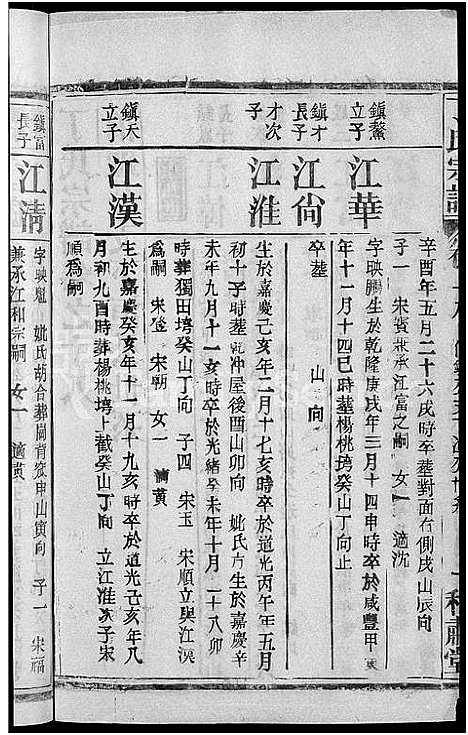 丁氏宗譜
辛酉年五月二十六戌時卒塟對面右側戌山辰向
子一 宋賓兼承江富之嗣 女一 適沈
鎮鰲立子
江華
字映鵬生於乾隆庚戌年三月十四申時卒於咸豐甲寅
年十一月十四巳時塟楊桃塆癸山丁向止
鎮才長子
江尙
卒塟 山 向
才次子
江淮
生於嘉慶己亥年二月十七亥時卒於道光丙午年五月
初十子時塟乾冲屋後酉山卯向 妣氏方生於嘉慶辛
未年九月十一亥時卒於光緒癸未年十月二十八卯
時葬獨田塆癸山丁向 子四 宋玉 宋順立與江漢
爲嗣 宋 宋朝 女一 適黃
鎮天立子
江漢
生於嘉慶癸亥年十一月十九亥時卒於道光己亥年八
月初九酉時葬楊桃塆上截癸山丁向 立江淮次子宋
順爲嗣
鎮富長子
江淸
字映魁 妣氏胡合葬 山寅向 子一 宋福
兼承江和宗嗣 女一 適黃